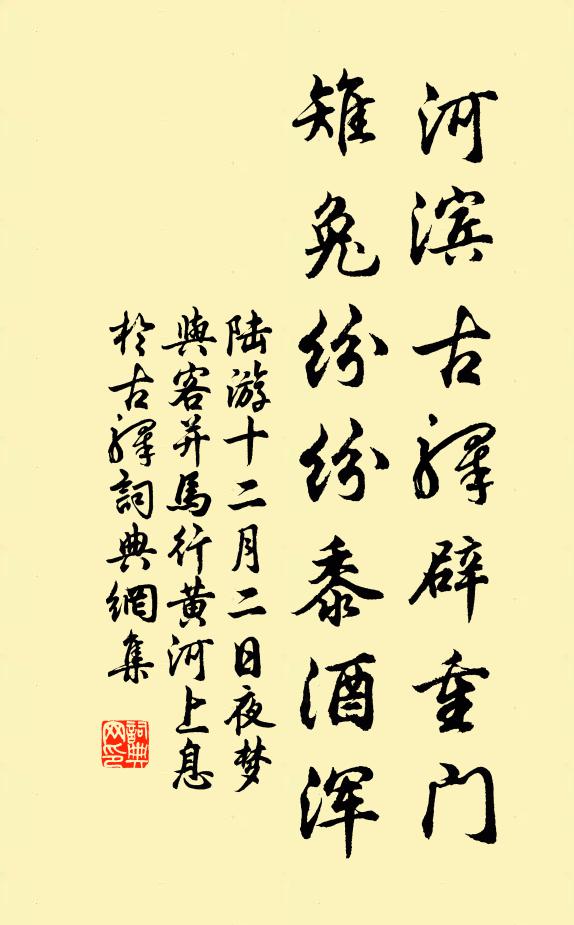 河滨古驿辟重门
雉兔纷纷黍酒浑
陆游十二月二日夜梦
與客并馬行黄河上息
於古驛詞典網集
詞典網印